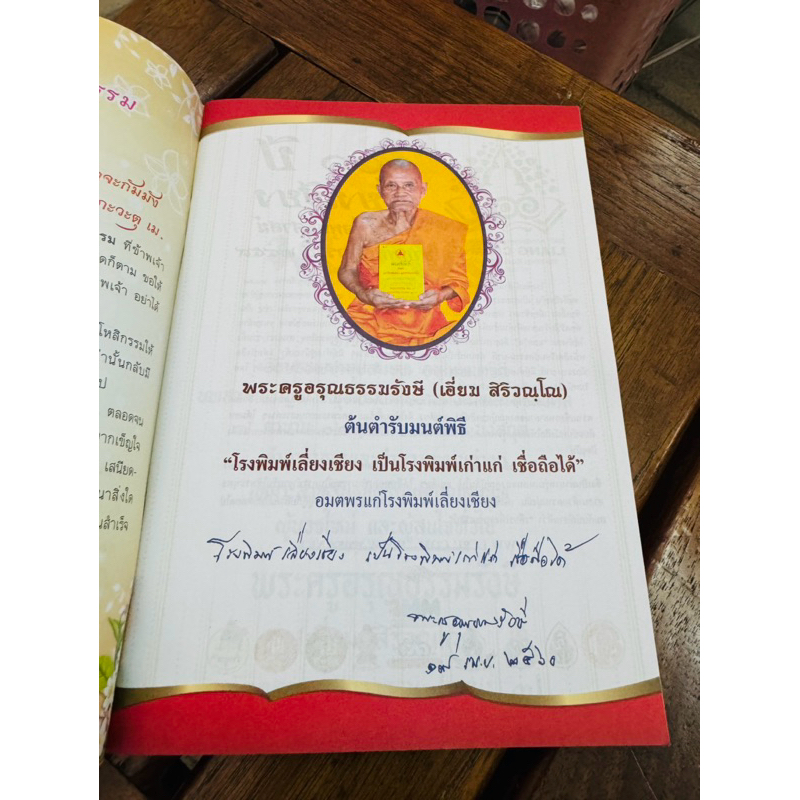 รรม
จะกัมมัง
กะวะตุ เม.
รม ที่ข้าพเจ้า
ดก็ตาม ขอให้
พเจ้า อย่าได้
โหสิกรรมให้
านั้นกลับมี
ป
ตลอดจน
ากเข็ญใจ
เสนียด-
นาสิ่งใด
นสำเร็จ
พระครูอรุณธรรมรังษี (เอี่ยม สิริวณฺโณ)
ต้นตำรับมนต์พิธี
“โรงพิมพ์เลี่ยงเชียง เป็นโรงพิมพ์เก่าแก่ เชื่อถือได้”
อมตพรแก่โรงพิมพ์เลี่ยงเชียง
โรงพิมพ์เลี่ยงเชียง เป็นโรงพิมพ์เก่าแก่ เชื่อถือได้
พระครูอรุณธรรมรังษี
เม.ย. ๒๕๖๐